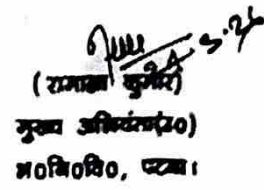 (रामाज्ञा कुमार)
मुख्य अभियंता(द०)
भ०नि०वि०, पटना।